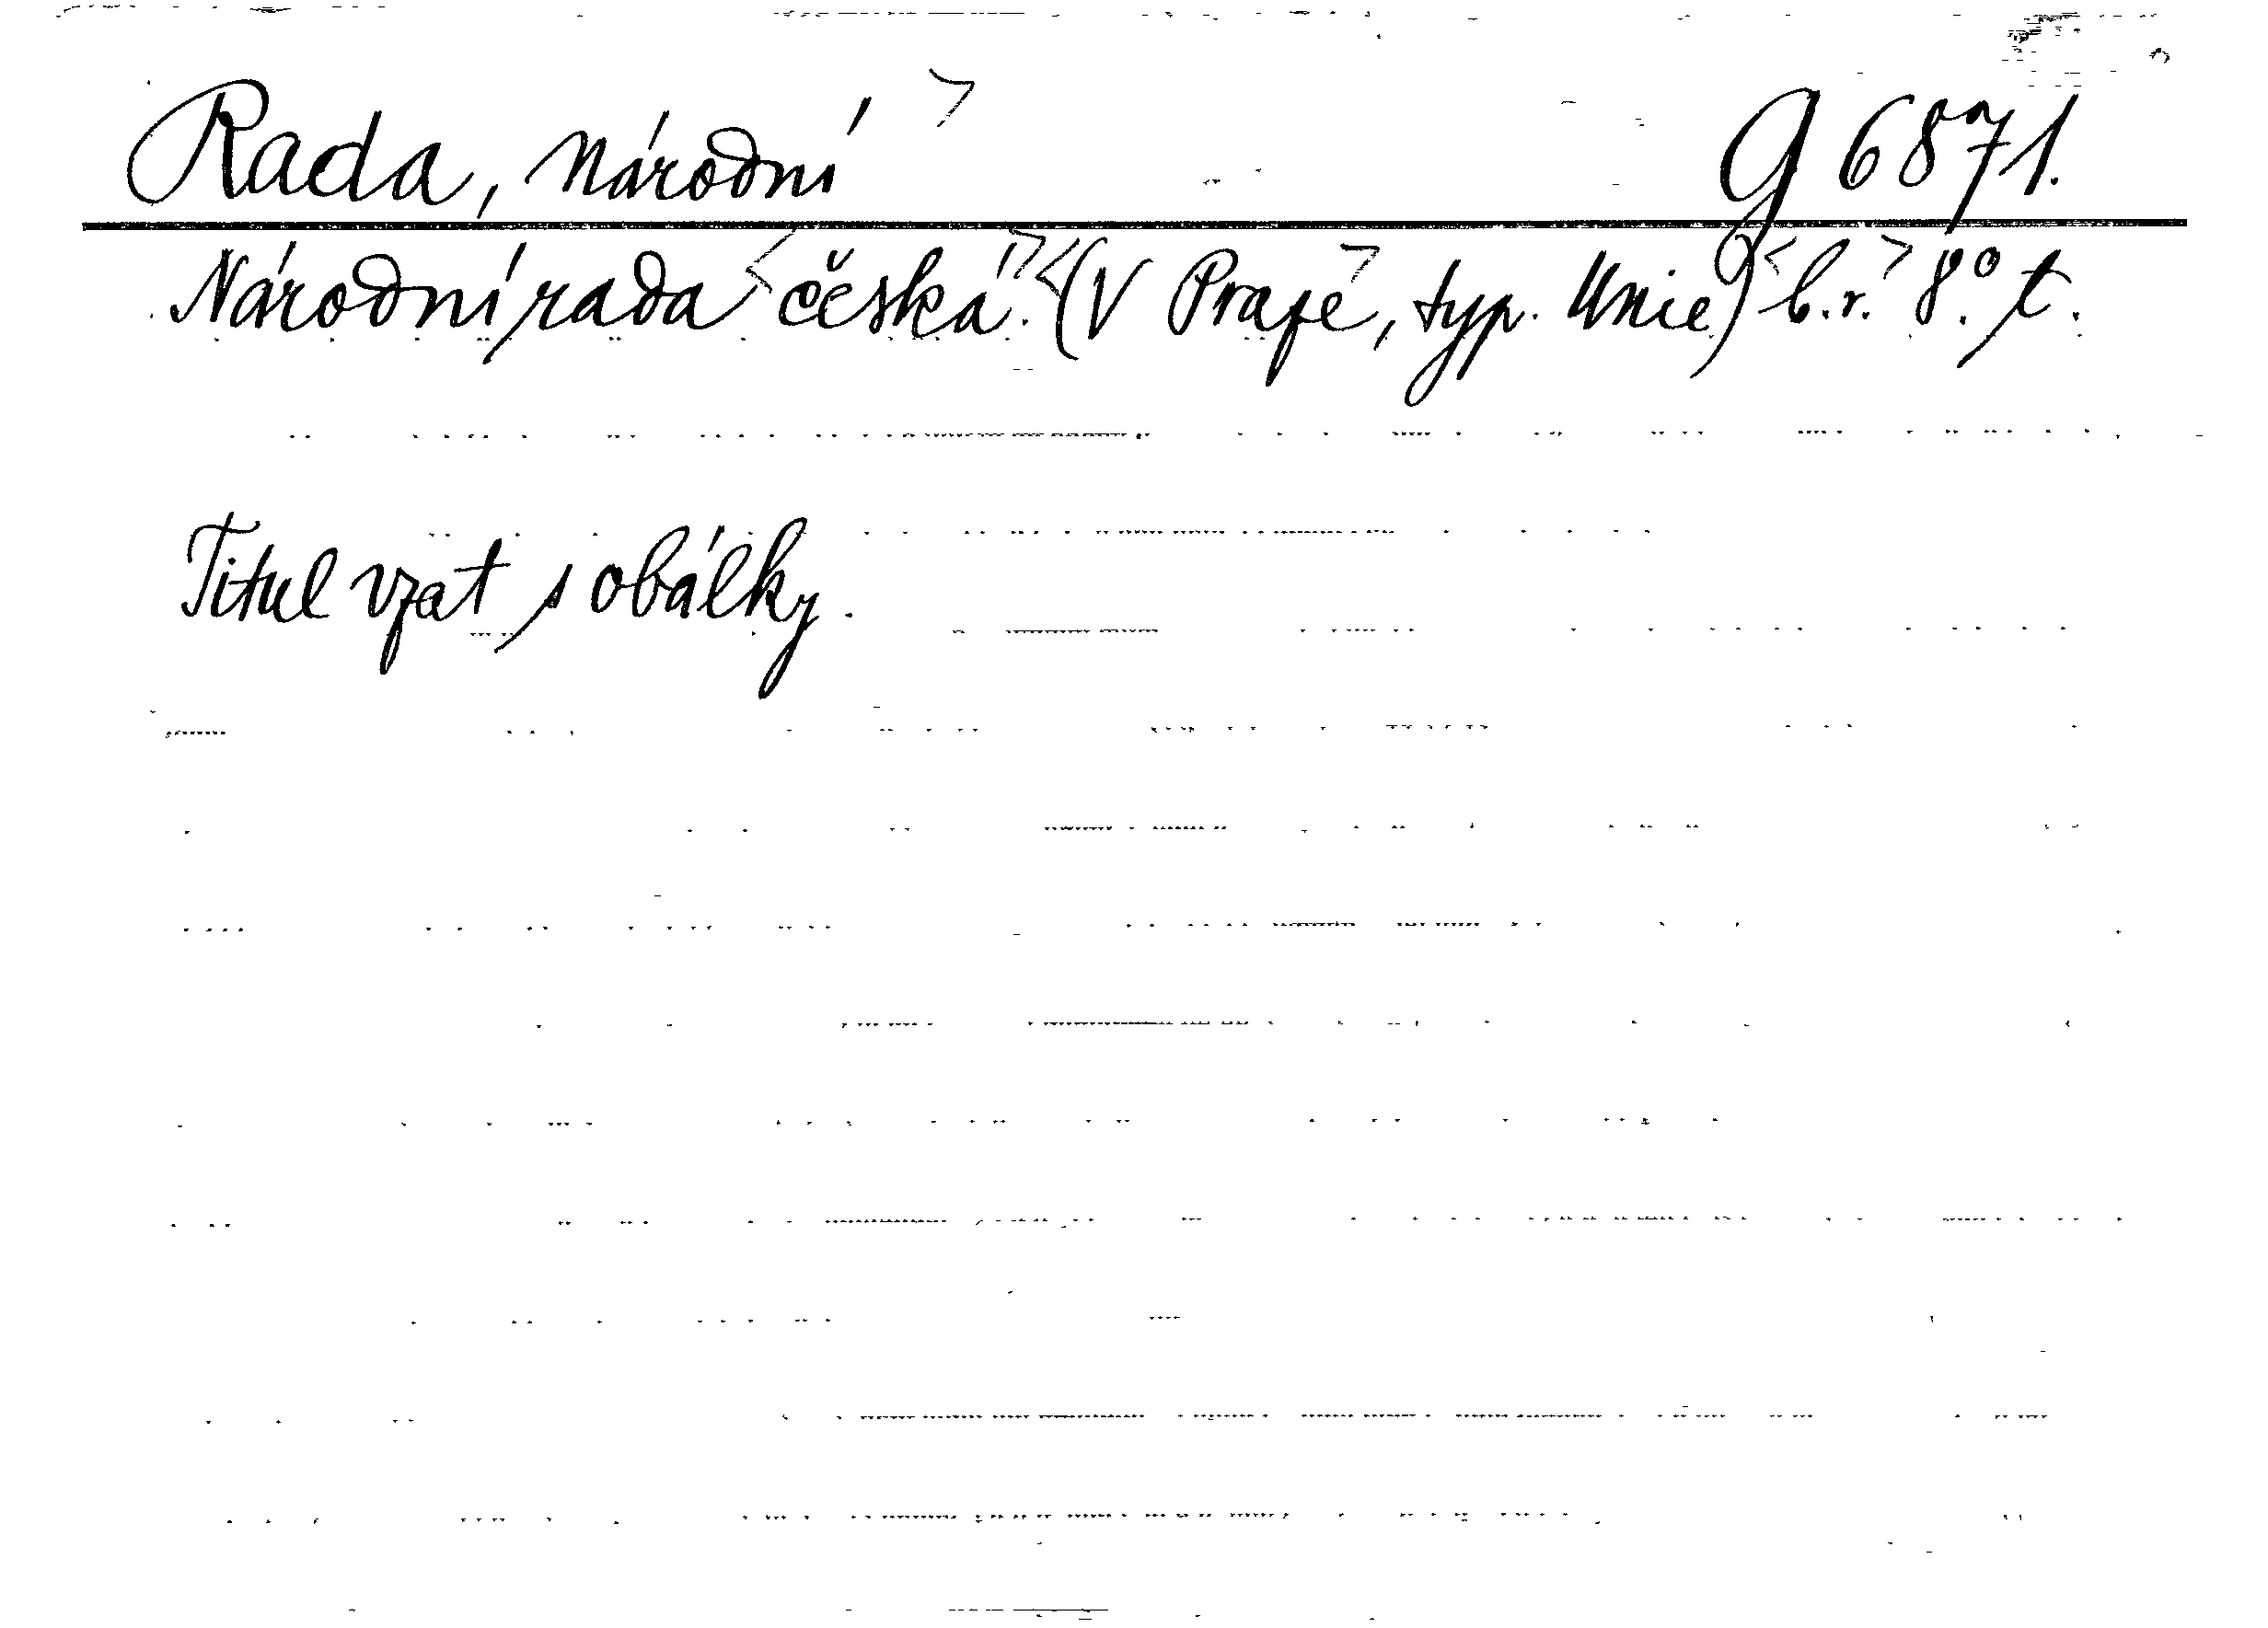 Rada, Národní> g 6871.
Národní rada <česká.> <(V Praze>, typ. Unie) <b.r.> 8.° t.
Titul vzat s obálky.